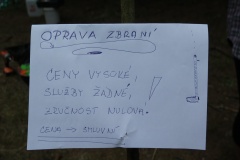 OPRAVA ZBRANÍ
CENY VYSOKÉ,
SLUŽBY ŽÁDNÉ,
ZRUČNOST NULOVÁ!
CENA → SMLUVNÍ